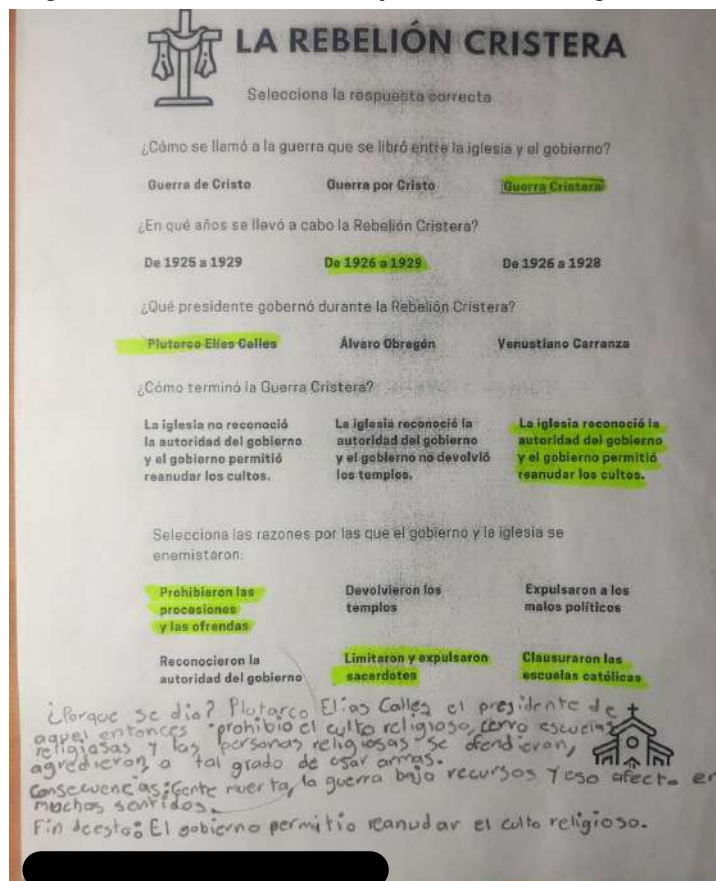 LA REBELIÓN CRISTERA
Selecciona la respuesta correcta
¿Cómo se llamó a la guerra que se libró entre la iglesia y el gobierno?
Guerra de Cristo Guerra por Cristo Guerra Cristera
¿En qué años se llevó a cabo la Rebelión Cristera?
De 1925 a 1929 De 1926 a 1929 De 1926 a 1928
¿Qué presidente gobernó durante la Rebelión Cristera?
Plutarco Elías Calles Álvaro Obregón Venustiano Carranza
¿Cómo terminó la Guerra Cristera?
La iglesia no reconoció
la autoridad del gobierno
y el gobierno permitió
reanudar los cultos.
La iglesia reconoció la
autoridad del gobierno
y el gobierno no devolvió
los templos.
La iglesia reconoció la
autoridad del gobierno
y el gobierno permitió
reanudar los cultos.
Selecciona las razones por las que el gobierno y la iglesia se
enemistaron:
Prohibieron las
procesiones
y las ofrendas
Devolvieron los
templos
Expulsaron a los
malos políticos
Reconocieron la
autoridad del gobierno
Limitaron y expulsaron
sacerdotes
Clausuraron las
escuelas católicas
¿Porque se dio? Plotarco Elías Calles el presidente de
aquel entonces prohibio el culto religioso, cerro escuelas
religiasas y las personas religiosas se ofendieron,
agredieron a tal grado de usar armas.
Consecuencias: Gente muerta, la guerra bajo recursos y eso afecto en
muchos sentidos.
Fin de esto: El gobierno permitio reanudar el culto religioso.